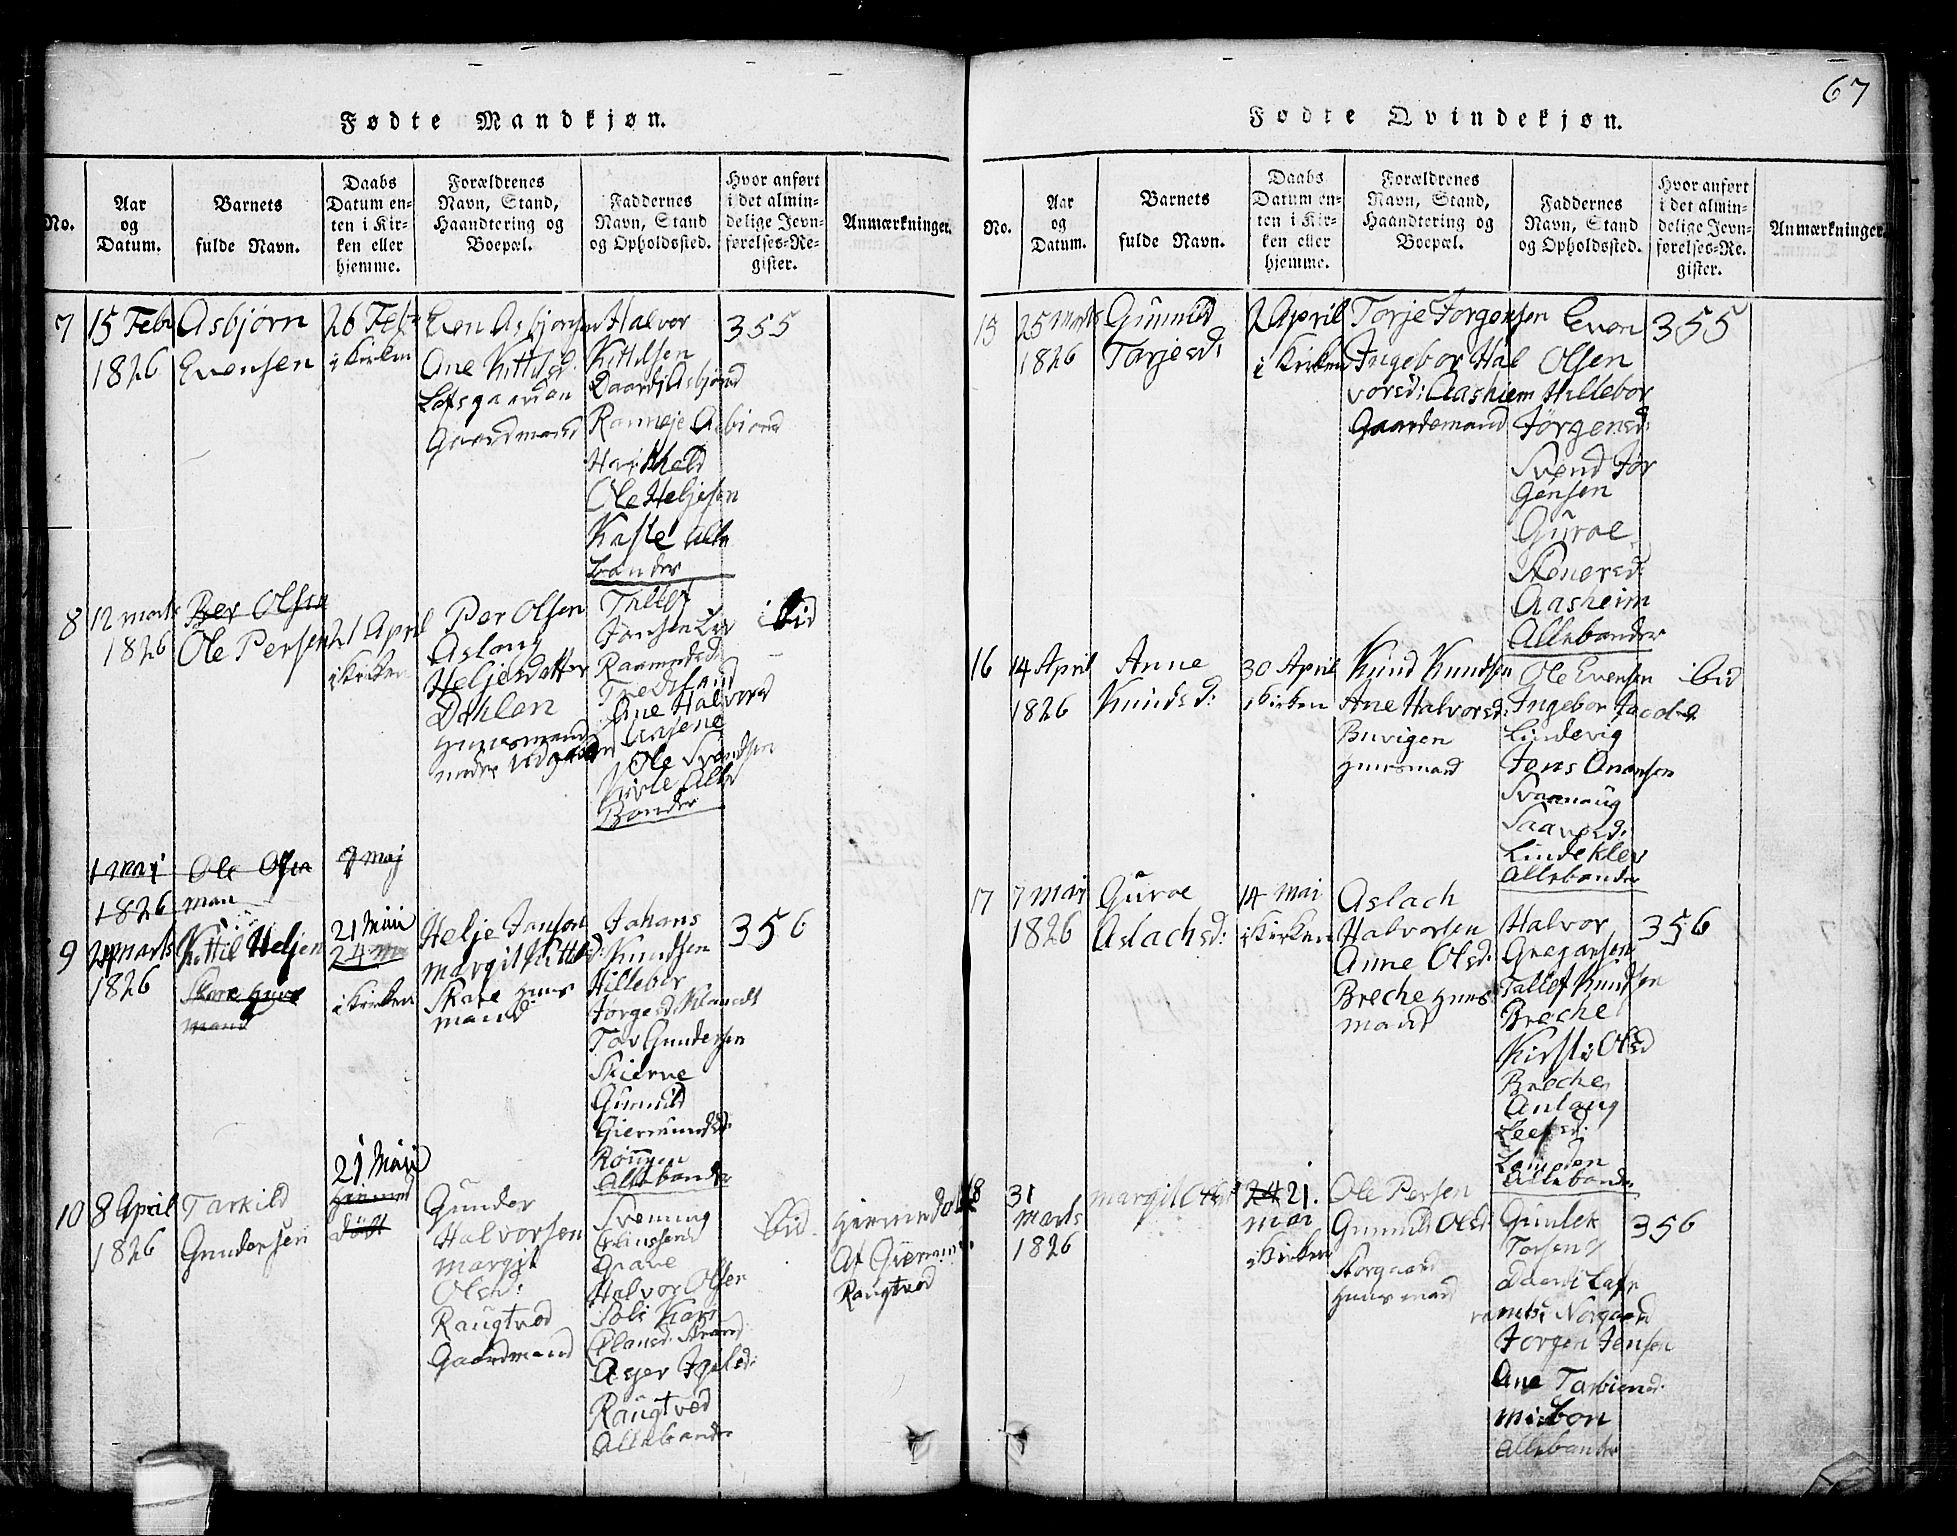 67
Fødte Mandkjøn.
No.
Aar
og
Datum.
Barnets
fulde Navn.
Daabs
Datum en-
ten i Kir-
ken eller
hjemme.
Forældrenes
Navn, Stand,
Haandtering og
Boepæl.
Faddernes
Navn, Stand
og Opholdssted.
Hvor anført
i det almin-
delige Jevn-
førelses-Re-
gister.
Anmærkninger.
7
15 Febr
1826
Asbjørn
Evensen
26 Febr
i Kirken
Even Asbjørnsen
Ane Kittilsd.
Lofsgaarden
Gaardmand
Halvor
Kittilsen
Ole Heljesen
Kaste alle
bønder
355
8
12 marts
1826
Per Olsen
Ole Persen
21 April
i Kirken
Per Olsen
Aslaug
Heljesdatter
Dahlen
Huusmand
Tellef
Jansen Lie
Ane Halvorsd
Ole Svendsen
Alle
Bønder
ibid
1 mai
1826
Ole Olsen
man
7 maj
9
24 marts
1826
Kittil Heljesen
Skare Huus
mand
21 Maii
24 m
i Kirken
Helje Janson
Margit Kittelsd:
Skare Huus
mand
Johans
Knudsen
Hillebor
Jørgesd. Klamodt
Tov Gundersen
Skierve
Gunnild
Giermundsd:
Rønngen
Alle bønder
356
10
8 April
1826
Tarkild
Gundersen
21 Maii
Hiemmed
døbt
Gunder
Halvorsen
Margit
Olsd:
Raugtved
Gaardmand
Svenning
Graue
Halvor Olsen
Raugtved
Alle bønder
ibid.
Hiemmedøbt
Af
Raugtved
Fødte Qvindekjøn.
No.
Aar
og
Datum.
Barnets
fulde Navn.
Daabs
Datum en-
ten i Kir-
ken eller
hjemme.
Forældrenes
Navn, Stand,
Haandtering og
Boepæl.
Faddernes
Navn, Stand
og Opholdssted.
Hvor anført
i det almin-
delige Jevn-
førelses-Re-
gister.
Anmærkninger.
15
25 Marts
1826
Gunnild
Tarjesd:
2 April
i Kirken
Torje Jorgensen
Ingebor Hal
vorsd: Aashiem
Gaardemand
Even
Olsen
Hillebor
Jørgensd:
Svend Jør
gensen
Guroe
Stenersd:
Aasheim
Alle bønder
355
16
14 April
1826
Anne
Knudsd:
30 April
i Kirken
Knud Knudsen
Ane Halvorsd:
Buvigen
Huusmand
Ole Evensen
Ingebor Jacobd
Lindevig
Jens Onensen
Svannaug
Saavesd:
Lindeklev
Alle bønder
ibid
17
7 Mai
1826
Guroe
Aslachsd:
14 Mai
i Kirken
Aslach
Halvorsen
Anne Olsd:
Breche Huus
mand
Halvor
Gregarsen
Tallef Knudsen
Breche
Kirsti Olsd
Breche
Anlaug
Leefsd:
Alle bønder
356
18
31
Marts
1826
Margit Olsd:
24 21.
Mai
i Kirken
Ole Persen
Gunnild Olsd:
Storgaard
Huusmand
Gunlek
Torsen
Norgaard
Jorgen Jensen
Ane Torbiønsd:
Alle bønder
356